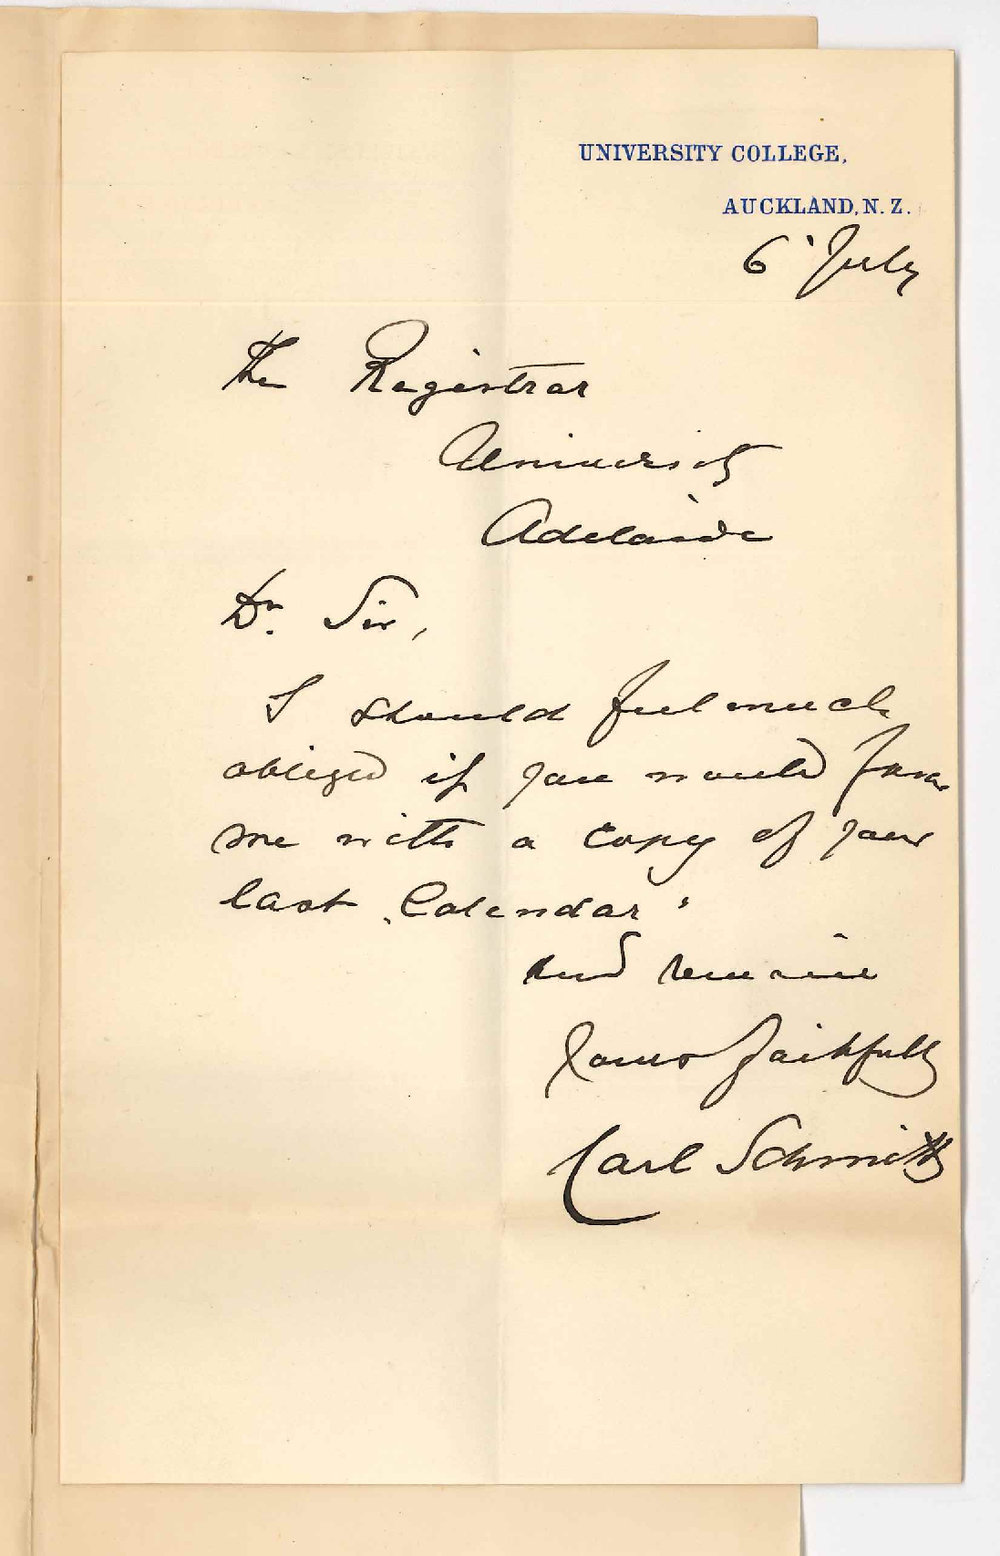 UNIVERSITY COLLEGE,
AUCKLAND, N. Z.
6' July
The Registrar
University
Adelaide
Dr. Sir,
I should feel much
obliged if you would favor
me with a copy of your
last "Calendar"
and remain
Yours faithfully
Carl Schmitt